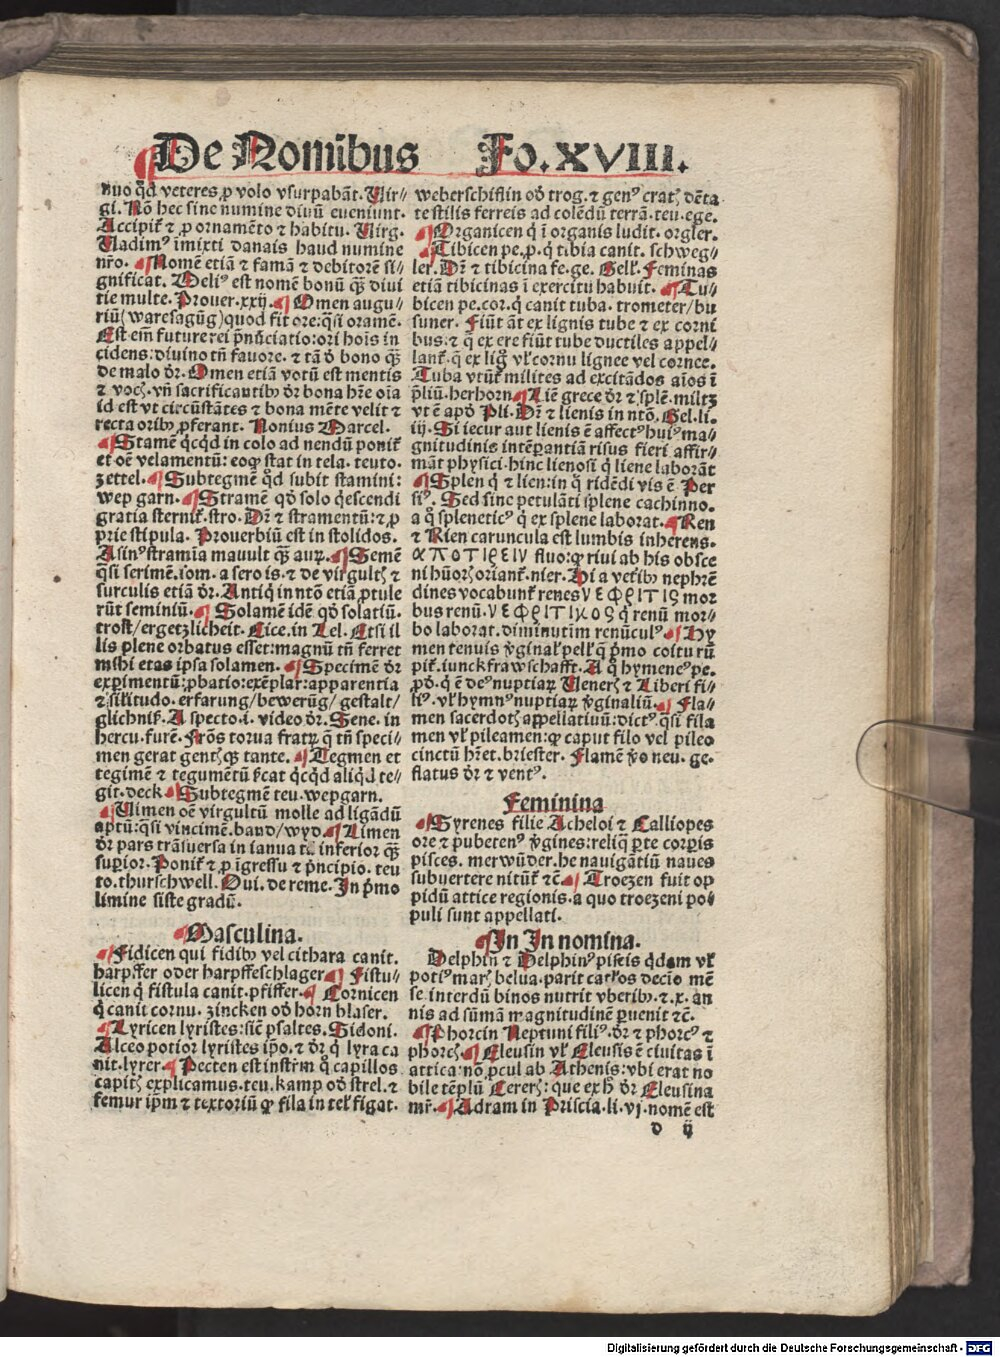 De Nomibus Fo.XVIII.
nuo qd̓ veteres ꝓ volo vsurpabāt. Uir⸗
gi. Nō hec sine numine diuū eueniunt.
Accipit̄ ⁊ ꝓ ornamēto ⁊ habitu. Uirg.
Uadimꝰ īmixti danais haud numine
nr̄o. ¶ Nomē etiā ⁊ famā ⁊ debitorē si⸗
gnificat. Meliꝰ est nomē bonū qͣꝫ diui
tie multe. Prouer.xxij. ¶ Omen augu⸗
riū (waresagūg) quod fit ore: qͣsi oramē.
Est em̄ future rei p̄nūciatio: ori hoīs in
cidens: diuino tn̄ fauore. ⁊ tā ð bono qͣꝫ
de malo dr̄. Omen etiā votū est mentis
⁊ vocꝭ. vn̄ sacrificantibꝰ dr̄ bona hr̄e oīa
id est vt circūstātes ⁊ bona mēte velit ⁊
recta oribꝰ ꝓferant. Nonius Marcel.
¶ Stamē qͥcqͥd in colo ad nendū ponit̄
et oē velamentū: eo qꝙ stat in tela. teuto.
zettel. ¶ Subtegmē qd̓ subit stamini:
wep garn. ¶ Stramē qd̓ solo qͥescendi
gratia sternit̄. stro. Dr̄ ⁊ stramentū: ⁊ ꝓ
prie stipula. Prouerbiū est in stolidos.
Asinꝰ stramīa mauult qͣꝫ auꝝ. ¶ Semē
qͣsi serimē. som. a sero is. ⁊ de virgultꝭ ⁊
surculis etiā dr̄. Antiqͥ in ntō etiā ꝓtule
rūt seminiū. ¶ Solamē idē qd̓ solatiū.
trost/ergetzlicheit. Cice. in Lel. Etsi il
lis plene orbatus essēt: magnū tn̄ ferret
mihi etas ipsa solamen. ¶ Specimē dr̄
exꝑimentū: ꝓbatio: exēplar: apparentia
⁊ sil̓itudo. erfarung/bewerūg/gestalt/
glichniß. A specto .i. video dr̄. Sene. in
hercu. furē. Frōs torua fratꝝ qͣ tn̄ speci⸗
men gerat gentꝭ qͣꝫ tante. ¶ Tegmen et
tegimē ⁊ tegumētū ſcat qͥcqͥd aliqͥd te⸗
git. deck. ¶ Subtegmē teu. wepgarn.
¶ Uimen oē virgultū molle ad ligādū
aptū: qͣsi vincimē. band/wyd. ¶ Limen
dr̄ pars trāsuersa in ianua tā inferior qͣꝫ
suꝑior. Ponit̄ ⁊ ꝓ īgressu ⁊ pͥncipio. teu
to. thurschwell. Oui. de reme. In pͥmo
limine siste gradū.
¶ Masculina.
¶ Fidicen qui fidibꝰ vel cithara canit.
harpffer oder harpffeschlager ¶ Fistu⸗
licen qͥ fistula canit. pfiffer. ¶ Cornicen
qͥ canit cornu. zincken od̓ horn blaser.
¶ Lyricen lyristes: siē psaltes. Sidoni.
Alceo potior lyristes ip̄o. ⁊ dr̄ qͥ lyra ca
nit. lyrer. ¶ Pecten est instr̄m qͦ capillos
capitꝭ explicamus. teu. kamp od̓ strel. ⁊
femur ip̄m ⁊ textoriū qͦ fila in tel̓ figat.
weberschifflin od̓ trog. ⁊ genꝰ cratꝭ dēta
te stilis ferreis ad colēdū terrā. teu. ege.
¶ Organicen qͥ ī organis ludit. orgler.
¶ Tibicen pe.ꝓ. qͥ tibia canit. schweg⸗
ler. Dr̄ ⁊ tibicina fe.ge. Gell̓. Feminas
etiā tibicinas ī exercitu habuit. ¶ Tu⸗
bicen pe.cor. qͥ canit tuba. trometer/bu
suner. Fiūt āt ex lignis tube ⁊ ex corni
bus: ⁊ q̄ ex ere fiūt tube ductiles appel⸗
lant̄. q̄ ex lig̓ vl̓ cornu lignee vel cornee.
Tuba vtūt̄ milites ad excitādos aīos ī
p̄liū. herhorn. ¶ Liē grece dr̄ ⁊ splē. miltz
vt ē apd̓ Pli. Dr̄ ⁊ lienis in ntō. Gel.li.
iij. Si iecur aut lienis ē affectꝰ huiꝰ ma⸗
gnitudinis intēꝑantiā risus fieri affir⸗
māt physici. hinc lienosi qͥ liene laborāt
¶ Splen qͥ ⁊ lien: in qͦ ridēdi vis ē Per
siꝰ. Sed sinc petulāti splene cachinno.
a qͦ spleneticꝰ qͥ ex splene laborat. ¶ Ren
⁊ Rien caruncula est lumbis inherens.
αποτιρειν fluo: qꝙ riui ab his obsce
ni hūorꝭ oriant̄. nier. Hi a vet̓ibꝰ nephrē
dines vocabunt̄ renes νεφριτις mor
bus renū. νεφριτικος qͥ renū mor⸗
bo laborat. diminutim renūculꝰ. ¶ Hy
men tenuis v̓ginal̓ pell̓ qͥ pͥmo coitu rū
pit̄. iunckfrawschafft. A qͦ hymeneꝰ pe.
ꝓd̓. q̄ ē deꝰ nuptiaꝝ Uenerꝭ ⁊ Liberi fi⸗
liꝰ. vl̓ hymnꝰ nuptiaꝝ v̓ginaliū. ¶ Fla⸗
men sacerdotꝭ appellatiuū: dictꝰ qͣsi fila
men vl̓ pileamen: qꝙ caput filo vel pileo
cinctū hr̄et. briester. Flamē v̓o neu. ge.
flatus dr̄ ⁊ ventꝰ.
Feminina
¶ Syrenes filie Acheloi ⁊ Calliopes
ore ⁊ pubetenꝰ v̓gines: reliq̄ ꝑte corꝑis
pisces. merwūder. he nauigātiū naues
subuertere nitūt̄ ⁊c̄. ¶ Troezen fuit op
pidū attice regionis. a quo troezeni po⸗
puli sunt appellati.
¶ In In nomina.
Delphin ⁊ Delphinꝰ piscis qͥdam vl̓
potiꝰ marꝭ belua. parit catl̓os decīo mē
se. interdū binos nutrit vberibꝰ. ⁊ .x. an
nis ad sūmā magnitudinē ꝑuenit ⁊c̄.
¶ Phorcin Neptuni filiꝰ. dr̄ ⁊ phorcꝰ ⁊
phorcꝭ. ¶ Eleusin vl̓ Eleusis ē ciuitas ī
attica: nō ꝓcul ab Athenis: vbi erat no
bile tēplū Cererꝭ: que exh̓ dr̄ Eleusina
mr̄. ¶ Adram in Priscia. li. vj. nomē est
d ij
Digitalisierung gefördert durch die Deutsche Forschungsgemeinschaft - DFG